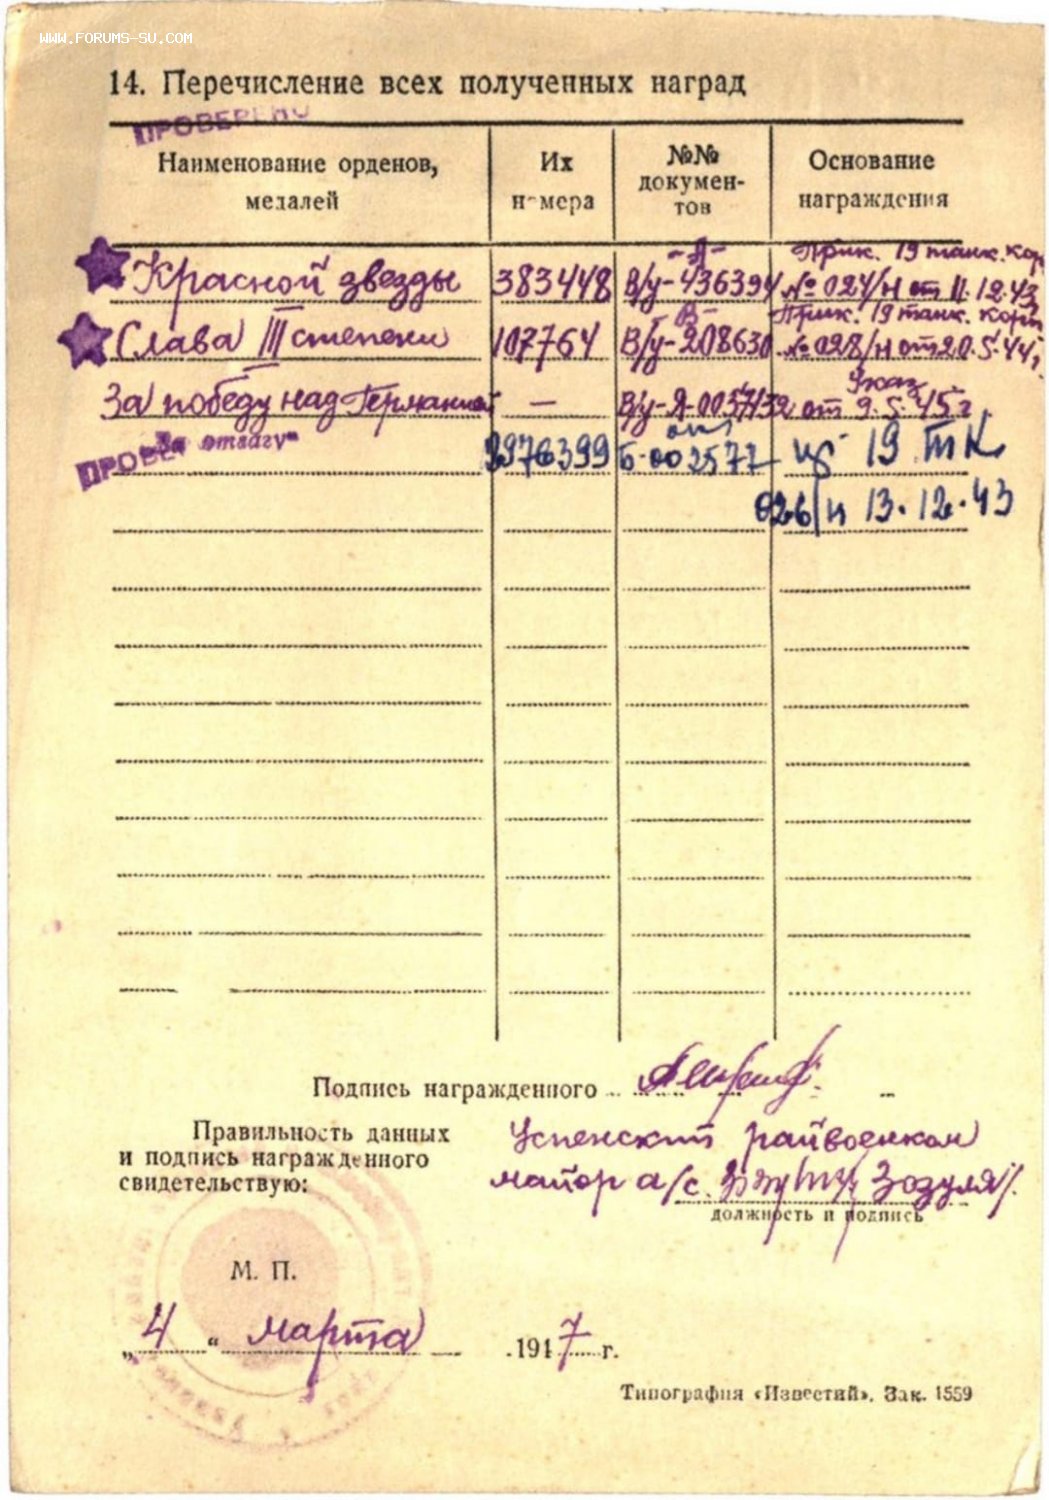 WWW.FORUMS-SU.COM
14. Перечисление всех полученных наград
ПРОВЕРЕНО
Наименование орденов, медалей
Их номера
№№ докумен-тов
Основание награждения
Красной звезды 383448 В/у-А-436394 Прик. 19 танк. кор. № 024/н от 11.12.43
Слава III степени 107764 В/у-В-208630 Прик. 19 танк. корп. № 028/н от 20.5.44г.
За победу над Германией — В/у-Я-0037432 Указ от 9.5.45г.
ПРОВЕРЕНО
"За отвагу" 2976399 Б-002577 пр 19 ТК
026/н 13.12.43
Подпись награжденного
Правильность данных Успенский райвоенком
и подпись награжденного майор а/с. /Зозуля/.
свидетельствую:
должность и подпись
М. П.
„4“ марта 1947 г.
Типография «Известий». Зак. 1559